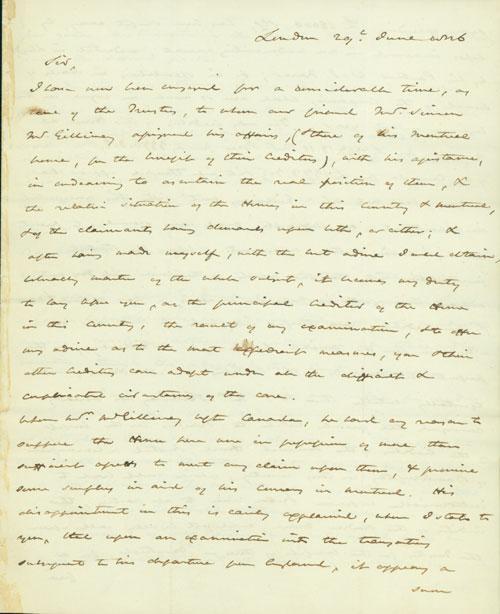 London 29th June 1826
Sir,
I have now been engaged for a considerable time, as
one of the Trustees, to whom our friend Mr. Simon
McGillivray assigned his affairs, (& those of his Montreal
house, for the benefit of their Creditors), with his assistance,
in endeavoring to ascertain the real position of them, &
the relative situation of the Houses in this Country & Montreal,
& of the claimants having demands upon both, or either; &
after having made myself, with the best advice I could obtain,
tolerably master of the whole subject, it becomes my duty
to lay before you, as the principal Creditor of the House
in this Country, the result of my examination, & to offer
my advice as to the most expedient measures, you & their
other Creditors can adopt under all the difficult &
complicated circumstances of the case.
When Mr. McGillivray left Canada, he had every reason to
suppose the House here were in possession of more than
sufficient assets to meet any claim upon them, & promise
some surplus in aid of his concerns in Montreal. His
disappointment in this is easily explained, when I state to
you, that upon an examination into the transactions
subsequent to his departure from England, it appears a
sum